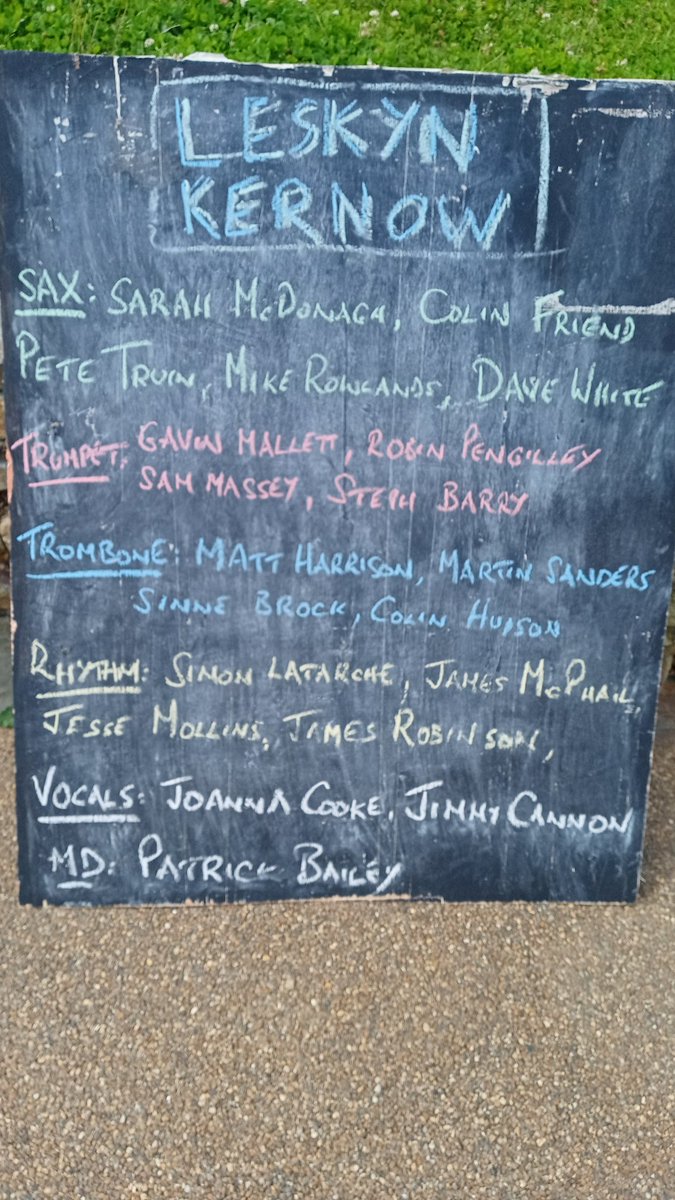 LESKYN
KERNOW
SAX: SARAH McDONAGH, COLIN FRIEND
PETE TRUIN, MIKE ROWLANDS, DAVE WHITE
TRUMPET: GAVIN MALLETT, ROBIN PENGILLEY
SAM MASSEY, STEPH BARRY
TROMBONE: MATT HARRISON, MARTIN SANDERS
SINNE BROCK, COLIN HUDSON
RHYTHM: SIMON LATARCHE, JAMES McPHAIL,
JESSE MOLLINS, JAMES ROBINSON,
VOCALS: JOANNA COOKE, JIMMY CANNON
MD: PATRICK BAILEY